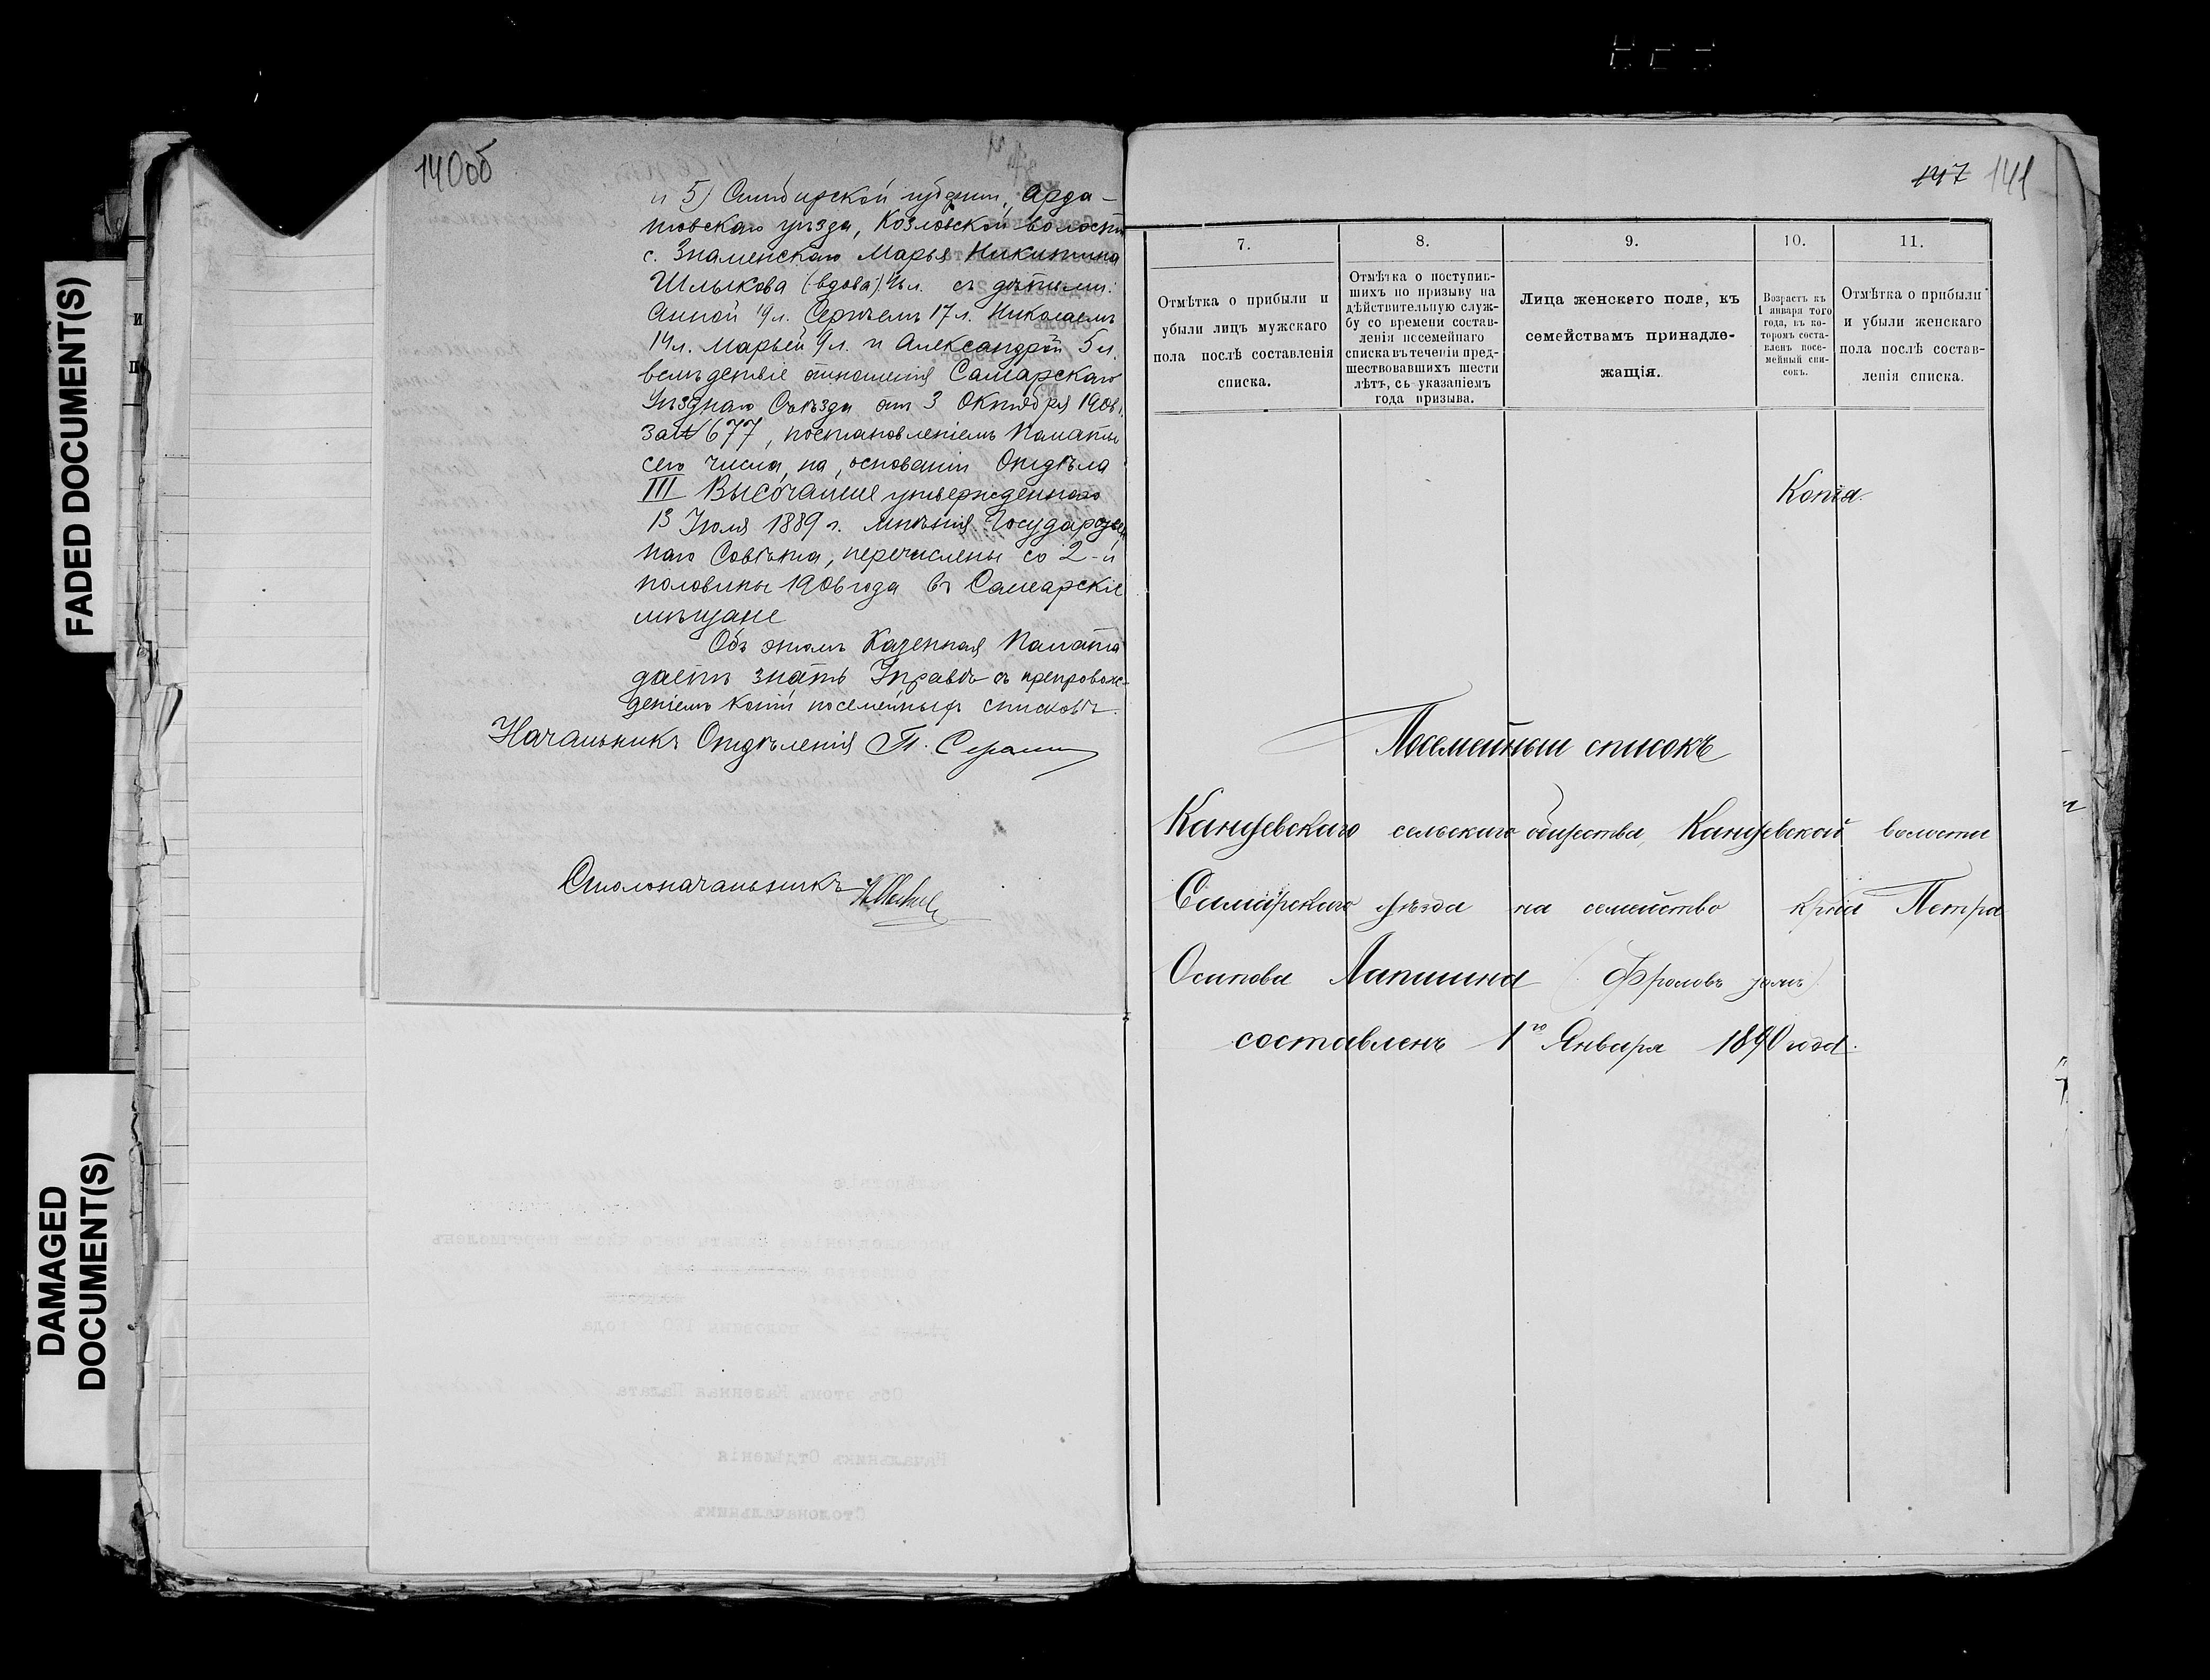 FADED DOCUMENT(S)
DAMAGED
DOCUMENT(S)
140об
и 5) Симбирской губерніи, Арда-
товскаго уѣзда, Козловской волости
с. Знаменскаго Марья Никитина
Шлыкова (вдова) л. съ дѣтьми:
Анной 19 л. Сергѣемъ 17 л. Николаемъ
14 л. Марьей 9 л. и Александрой 5 л.
вслѣдствіе отношенія Самарскаго
Уѣзднаго Съѣзда отъ 3 Октября 1906 г.
за № 677, постановленіемъ Палаты
сего числа, на основаніи Отдѣла
III Высочайше утвержденнаго
13 Іюля 1889 г. мнѣнія Государствен
наго Совѣта, перечислены со 2-й
половины 1906 года въ Самарскіе
мѣщане
Объ этомъ Казенная Палата
даетъ знать Управѣ съ препровож-
деніемъ копіи посемейныхъ списковъ.
Начальникъ Отдѣленія П.
Столоначальникъ
147 141
7. 8. 9. 10. 11.
Отмѣтка о прибыли и
убыли лицъ мужскаго
пола послѣ составленія
списка.
Отмѣтка о поступив-
шихъ по призыву на
дѣйствительную служ-
бу со времени состав-
ленія посемейнаго
списка въ теченіи пред-
шествовавшихъ шести
лѣтъ, съ указаніемъ
года призыва.
Лица женскаго пола, къ
семействамъ принадле-
жащія.
Возрастъ къ
1 января того
года, въ ко-
торомъ соста-
вленъ посе-
мейный спи-
сокъ.
Отмѣтка о прибыли
и убыли женскаго
пола послѣ состав-
ленія списка.
Копія.
Посемейный списокъ
Канцевскаго сельскаго общества, Канцевской волости
Самарскаго уѣзда на семейство кр-на Петра
Осипова Лапшина (Фроловъ)
составленъ 1го Января 1890 года.
Объ этомъ Казенная Палата
Начальникъ Отдѣленія
Столоначальникъ